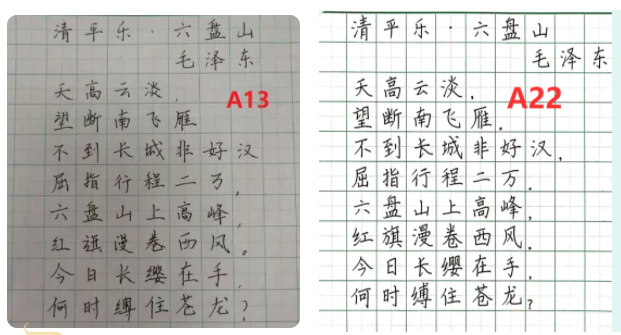 清平乐·六盘山
毛泽东
天高云淡,
A13
望断南飞雁
不到长城非好汉
屈指行程二万,
六盘山上高峰,
红旗漫卷西风。
今日长缨在手,
何时缚住苍龙?
清平乐·六盘山
毛泽东
天高云淡,
A22
望断南飞雁.
不到长城非好汉,
屈指行程二万.
六盘山上高峰,
红旗漫卷西风.
今日长缨在手,
何时缚住苍龙?